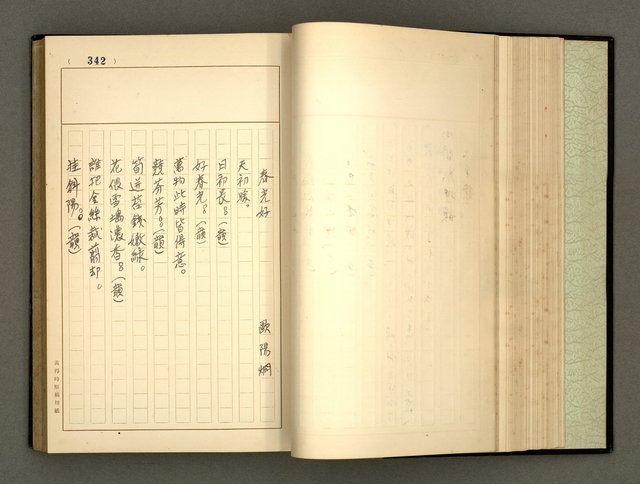 ( 342 )
春光好　歐陽烱
天初暖。
日初長。。(韻)
好春光。。(韻)
萬物此時皆得意。
競芬芳。。(韻)
筍迸苔錢嫩綠。
花偎雪塢濃香。。(韻)
誰把金絲裁翦却。
挂斜陽。。(韻)
黃得時原稿用紙